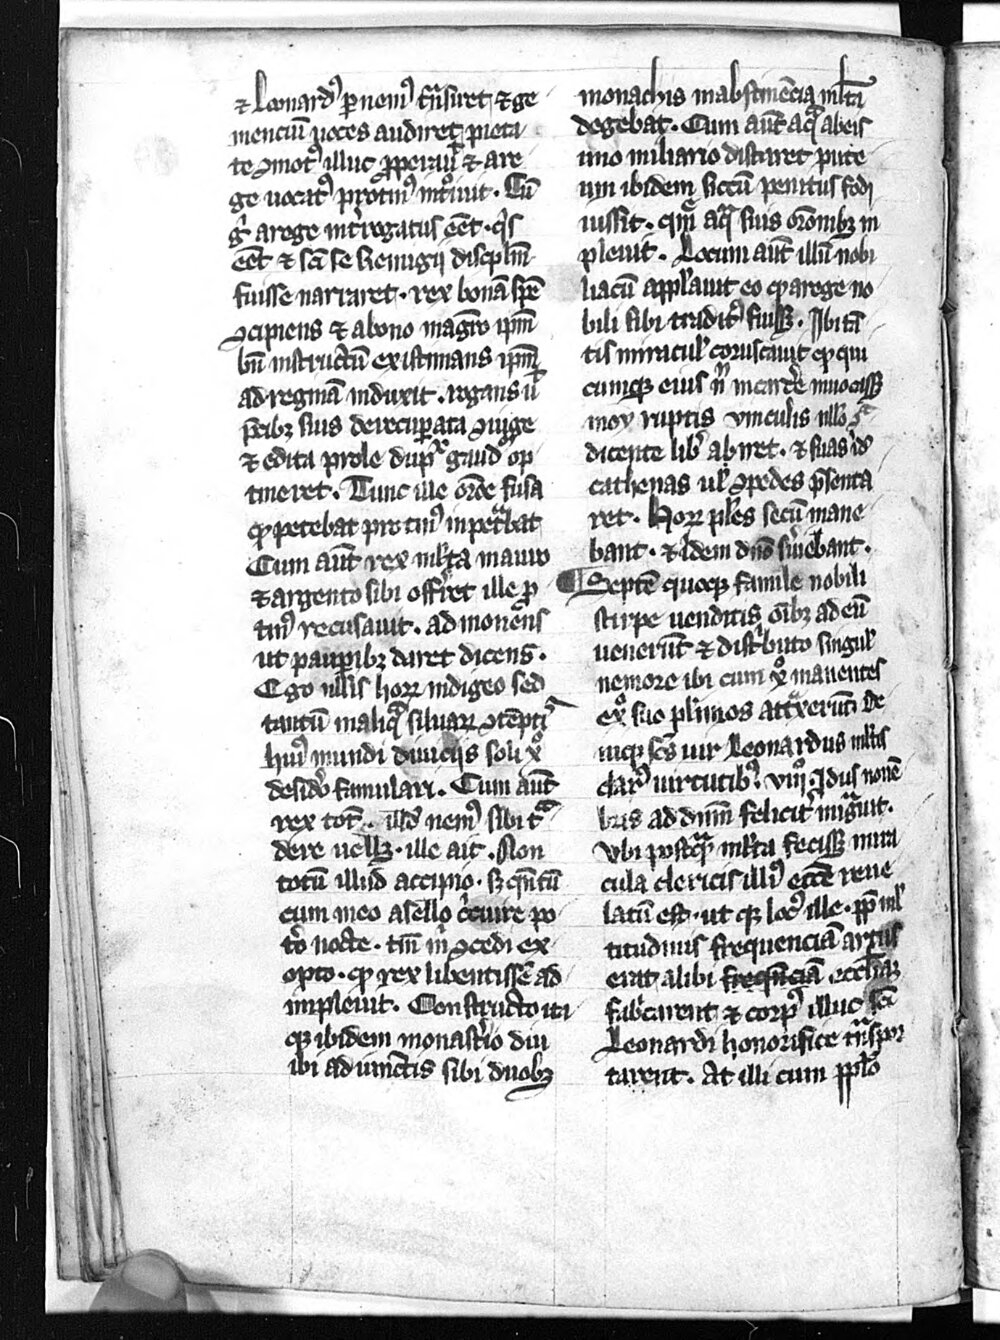 ⁊ Leonard᷒ ꝑ nem᷒ t̄nsiret ⁊ ge
menciū uoces audiret pieta
te ꝯmot᷒ illuc ꝓperauit ⁊ a re
ge uocat᷒ protin᷒ intͦiuit. Cū
gͦ a rege int̾rogatus eēt. qͥs
eēt ⁊ sc̄i se Remigij discipl̄m
fuisse narraret. rex bonā spē
ꝯcipiens ⁊ a bono magr̄o ipm̄
bn̄ instructū existimans ipm̄
ad reginā induxit. rogans ut
p̄cibꝫ suis de recuꝑata ꝯiuge
⁊ edita prole dupͣ gaudͦ op
tineret. Tunc ille or̄oe fusa
ꝙ petebat protin᷒ inpetͣbat
Cum aūt rex ml̄ta maurͦ
⁊ argento sibi off̾ret ille ꝓ
tin᷒ recusauit. ad monens
ut pauꝑibꝫ daret dicens.
Ego ullis hoꝝ indigeo sed
tantū in aliqͣ siluaꝝ ꝯtēptis
hui᷒ mundi diuicijs soli xͦ
desid̾o famulari. Cum aūt
rex tot. illd̄ nem᷒ sibi tͣ
dere uellꝫ. ille ait. Non
totū illud accipio. sꝫ qͣntū
cum meo asello cͥcuire po
t̾o nocte. tm̄ m̄ ꝯcedi ex
opto. ꝙ rex libentissē ad
impleuit. Constructo ita
qꝫ ibidem monast̾io diu
ibi ad uinctis sibi duobꝫ
monachis in abstinēcia ml̄ta
degebat. Cum aūt aqͣ ab eis
uno miliario distaret pute
um ibidem siccū penitus fodi
iussit. qm̄ aqͣ suis or̄onibꝫ in
pleuit. Locum aūt illū nobi
liacū appl̄auit eo ꝙ a rege no
bili sibi tradit᷒ fuissꝫ. Ibi tā
tis miracul̾ coruscauit ꝙ qui
cumqꝫ eius n̄ in carc̾e inuocassꝫ
moꝝ ruptis vinculis nullo ꝯtͣ
dicente lib̾ abiret. ⁊ suas id̾o
cathenas ul̾ ꝯpedes p̄senta
ret. Hoꝝ pl̄es secū mane
bant. ⁊ ibidem dn̄o s̾uiebant.
¶ Septē quoqꝫ famile nobili
stirpe uenditis oībꝫ ad eū
venerūt ⁊ distͥbuto singul̾
nemore ibi cum xͦ manentes
exͦ suo pl̾imos attͣxerunt De
niqꝫ sc̄s uir Leonardus ml̄tis
clar᷒ uirtutib᷒ viijͦ. Idus nouē
bris ad dn̄m felicit̾ migͣuit.
Vbi postqͣ ml̄ta fecissꝫ mira
cula clericis illi᷒ eccē reue
latū est. ut qꝫ loc᷒ ille. ꝓp̄ ml̾
titudinis frequenciā artus
erat alibi freq̄nciā eccl̄iaꝫ
fabͥcarent ⁊ corp᷒ illuc sc̄i
Leonardi honorifice t̄nspor
tarent. At illi cum ppl̄o